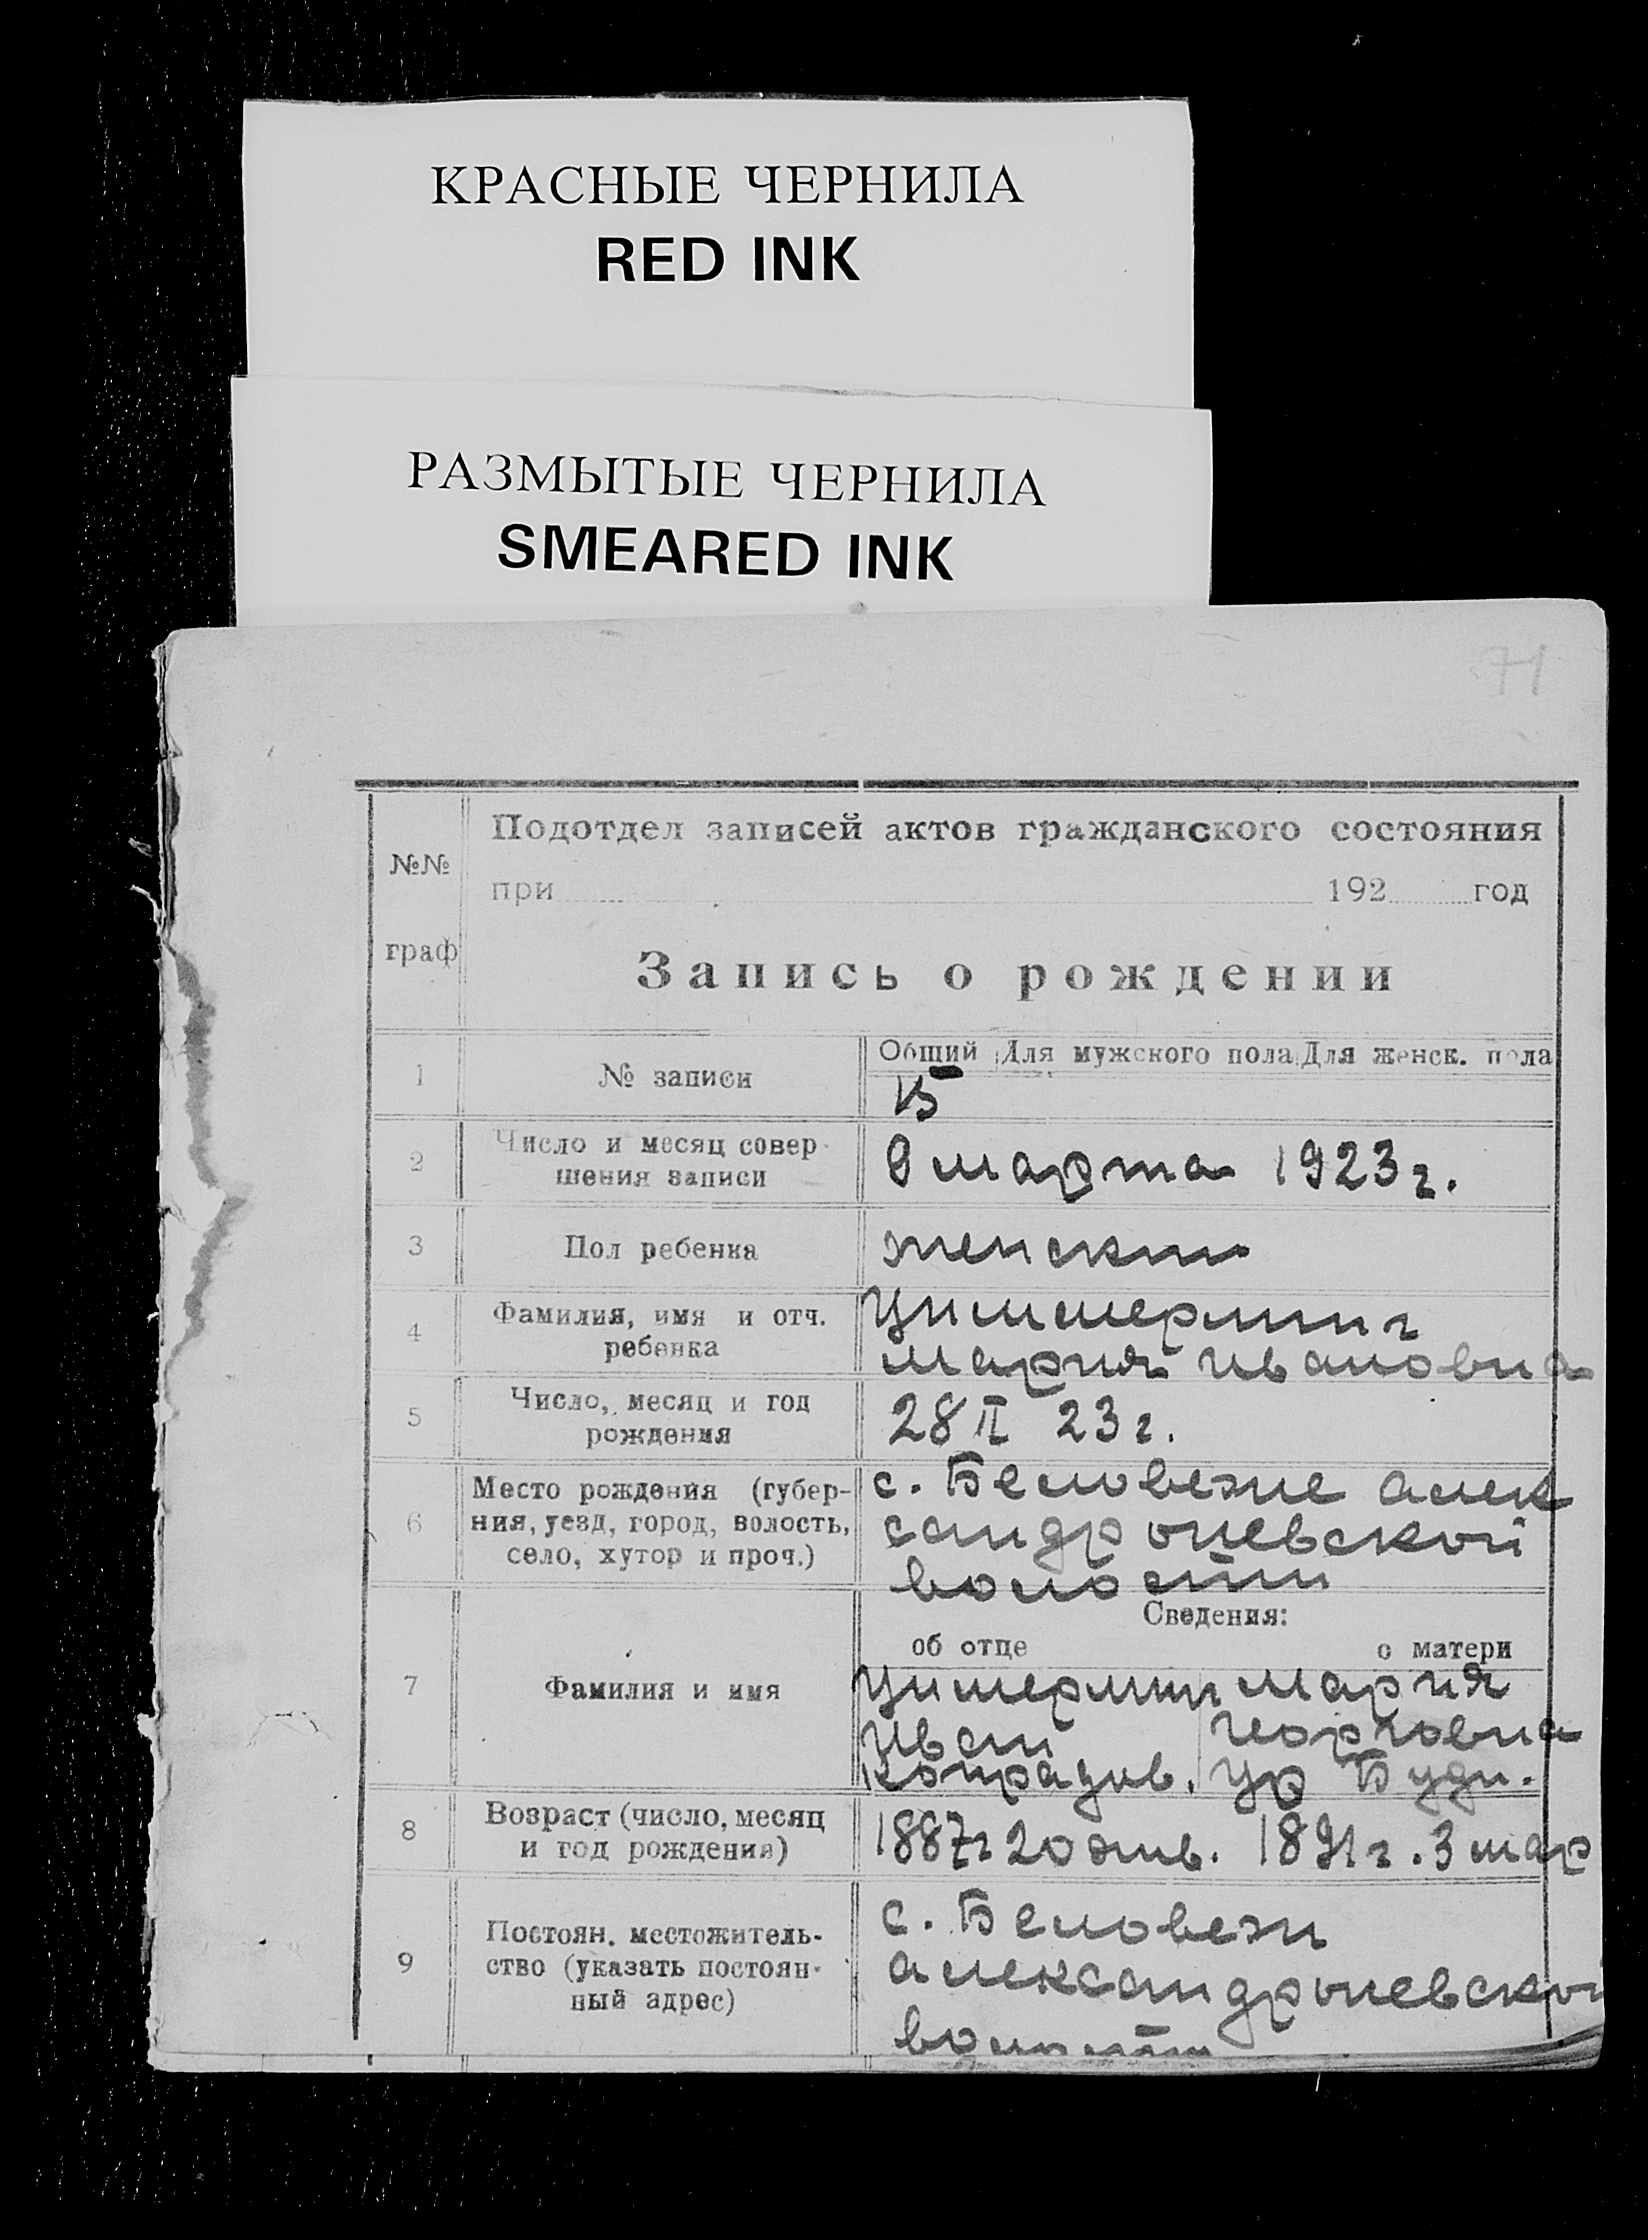 КРАСНЫЕ ЧЕРНИЛА
RED INK
РАЗМЫТЫЕ ЧЕРНИЛА
SMEARED INK
71
№№
граф
Подотдел записей актов гражданского состояния
при 192 год
Запись о рождении
1
№ записи
Общий Для мужского пола Для женск. пола
15
2
Число и месяц совер-
шения записи
9 марта 1923 г.
3
Пол ребенка
женский
4
Фамилия, имя и отч.
ребенка
Мария Ивановна
5
Число, месяц и год
рождения
28 II 23 г.
6
Место рождения (губер-
ния, уезд, город, волость,
село, хутор и проч.)
с. Беловежие алек
сандроневской
волости
Сведения:
об отце о матери
7
Фамилия и имя
Мария
Иван
ур Буди.
8
Возраст (число, месяц
и год рождения)
1887 г 20 янв. 1891 г. 3 мар
9
Постоян. местожитель-
ство (указать постоян-
ный адрес)
с. Беловежи
александроневской
волости